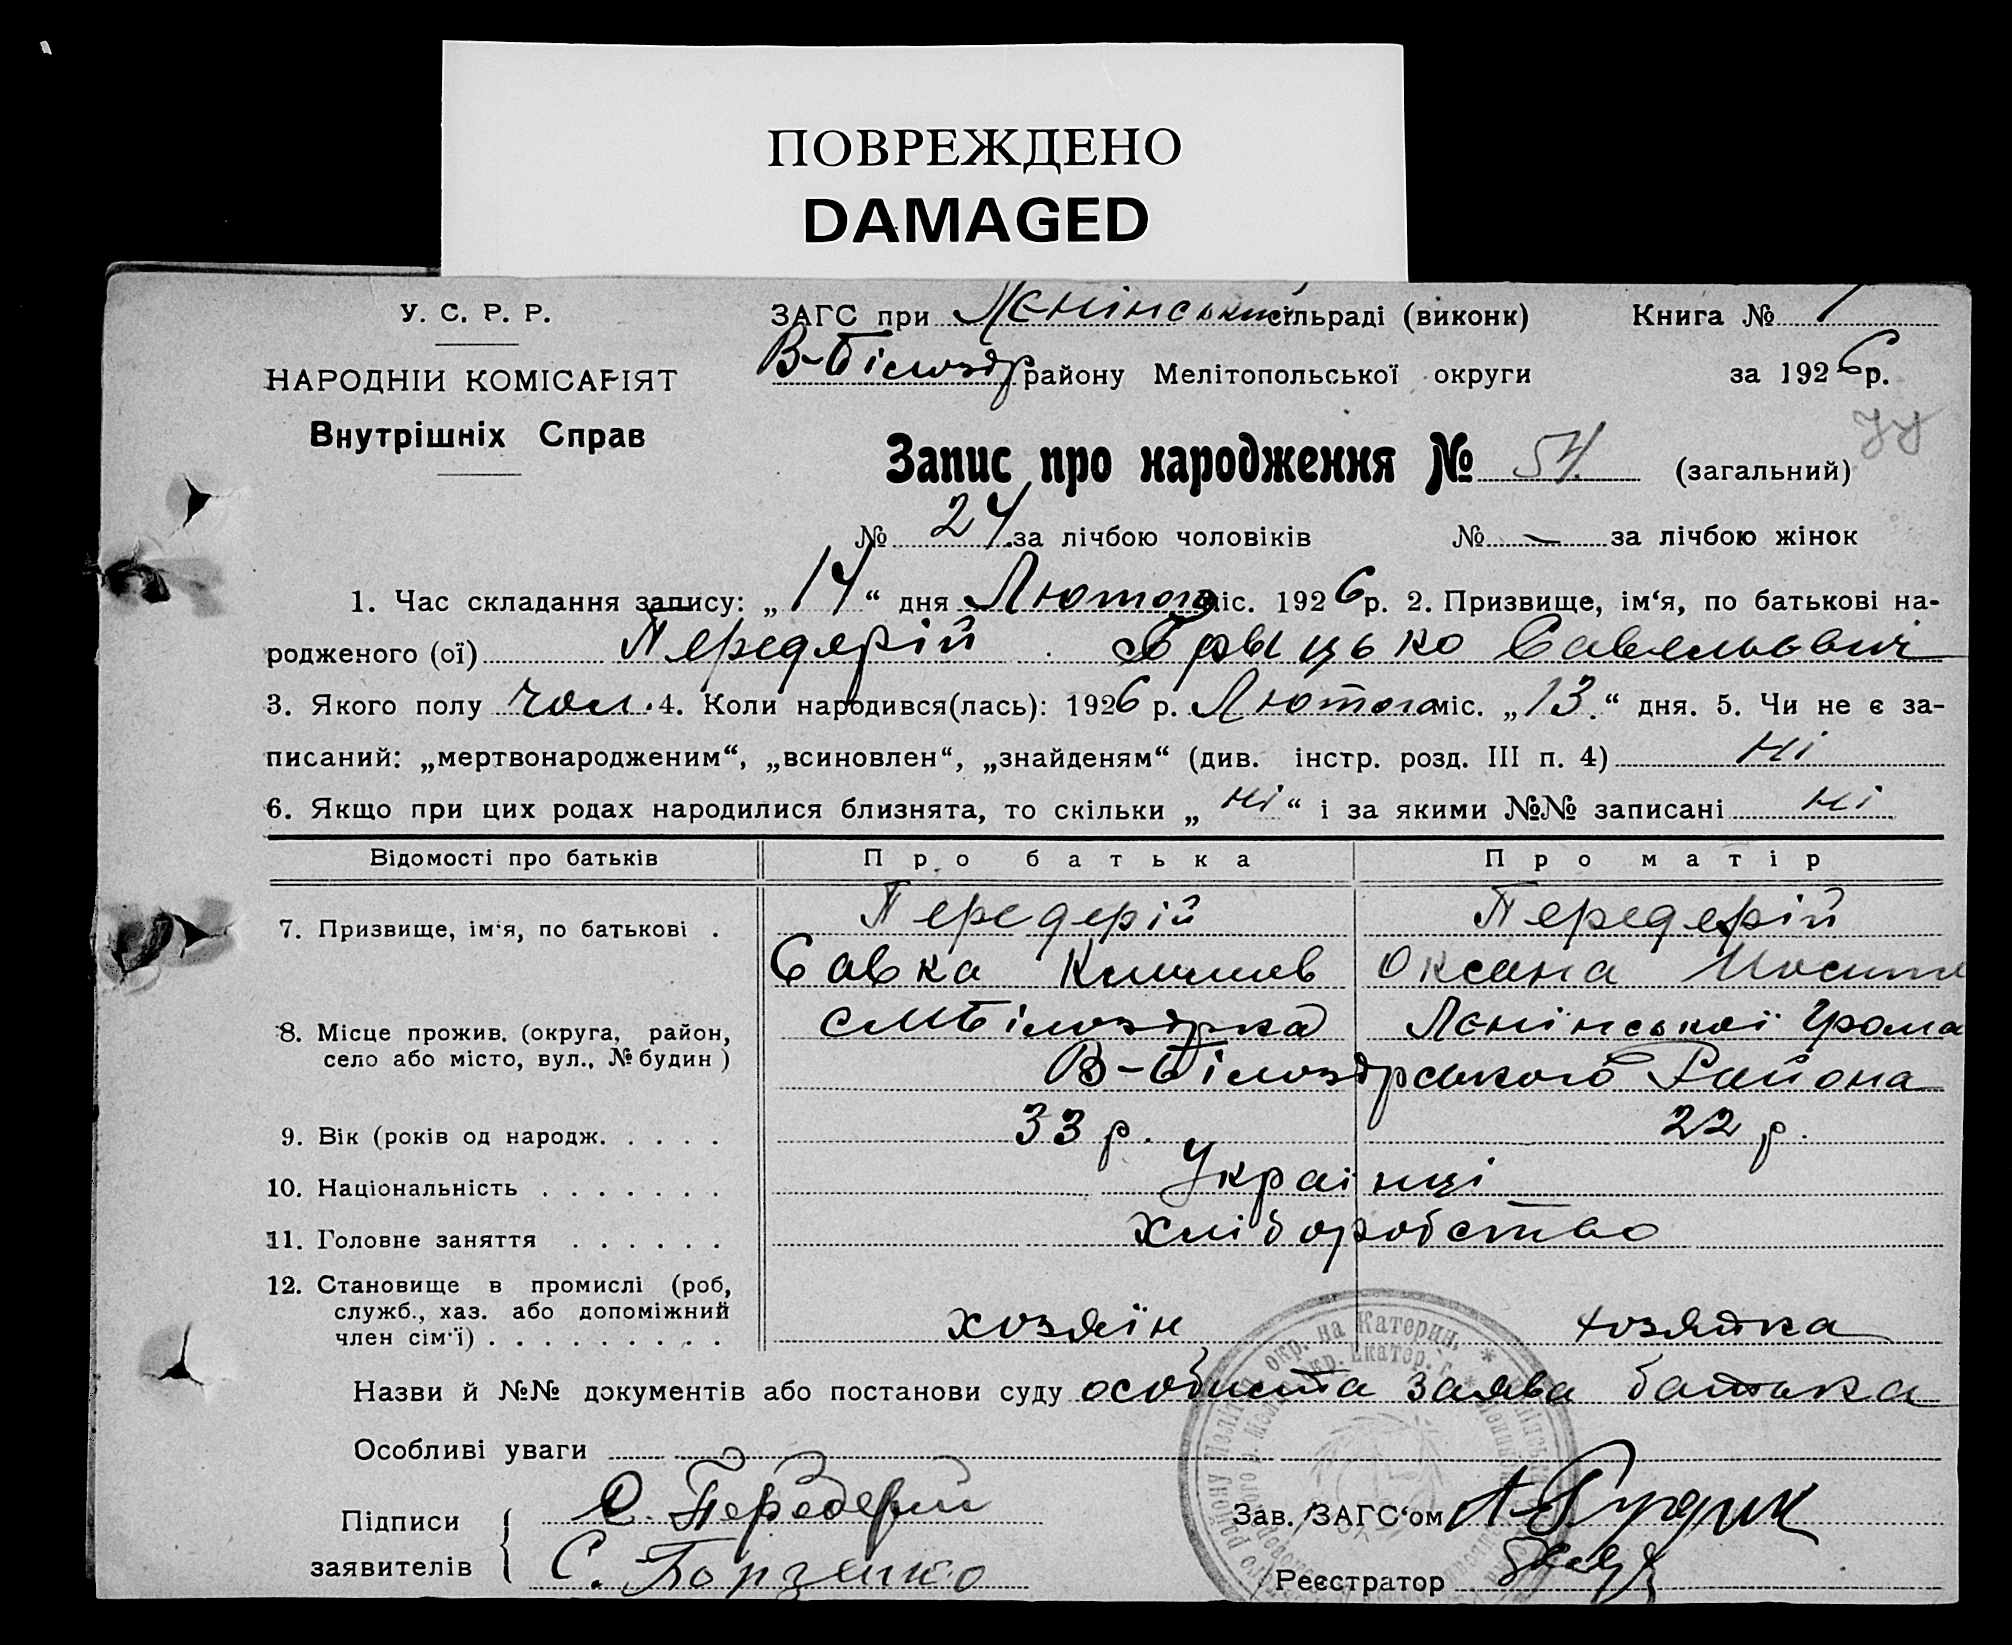 ПОВРЕЖДЕНО
DAMAGED
У. С. Р. Р.
НАРОДНІЙ КОМІСАРІЯТ
Внутрішніх Справ
ЗАГС при Лєнінськ сільраді (виконк) Книга № 1
В-Білозэр району Мелітопольської округи за 1926 р.
Запис про народження № 54 (загальний)
№ 24 за лічбою чоловіків № — за лічбою жінок
1. Час складання запису: „14“ дня Лютого міс. 1926 р. 2. Призвище, ім‘я, по батькові на-
родженого (ої) Пєрєдєрій Грыцько Савєльєвич
3. Якого полу чол. 4. Коли народився(лась): 1926 р. Лютого міс. „13.“ дня. 5. Чи не є за-
писаний: „мертвонародженим“, „всиновлен“, „знайденям“ (див. інстр. розд. III п. 4) Ні
6. Якщо при цих родах народилися близнята, то скільки „Ні“ і за якими №№ записані Ні
Відомості про батьків Про батька Про матір
7. Призвище, ім‘я, по батькові . Пєрєдєрій Пєрєдєрій
Савка Климив Оксана
8. Місце прожив. (округа, район, село або місто, вул., № будин) Білозэрка Лєнінської Грома
В-Білозэрського Района
9. Вік (років од народж. . . . . 33 р. 22 р.
10. Національність . . . . . . . Українці
11. Головне заняття . . . . . . Хліборобство
12. Становище в промислі (роб,
служб., хаз. або допоміжний
член сім‘ї) . . . . . . . . . хозяїн хозяйка
Назви й №№ документів або постанови суду особиста заява батька
Особливі уваги
Підписи С. Передерий Зав. ЗАГС‘ом
заявителів С. Борзенко Реєстратор